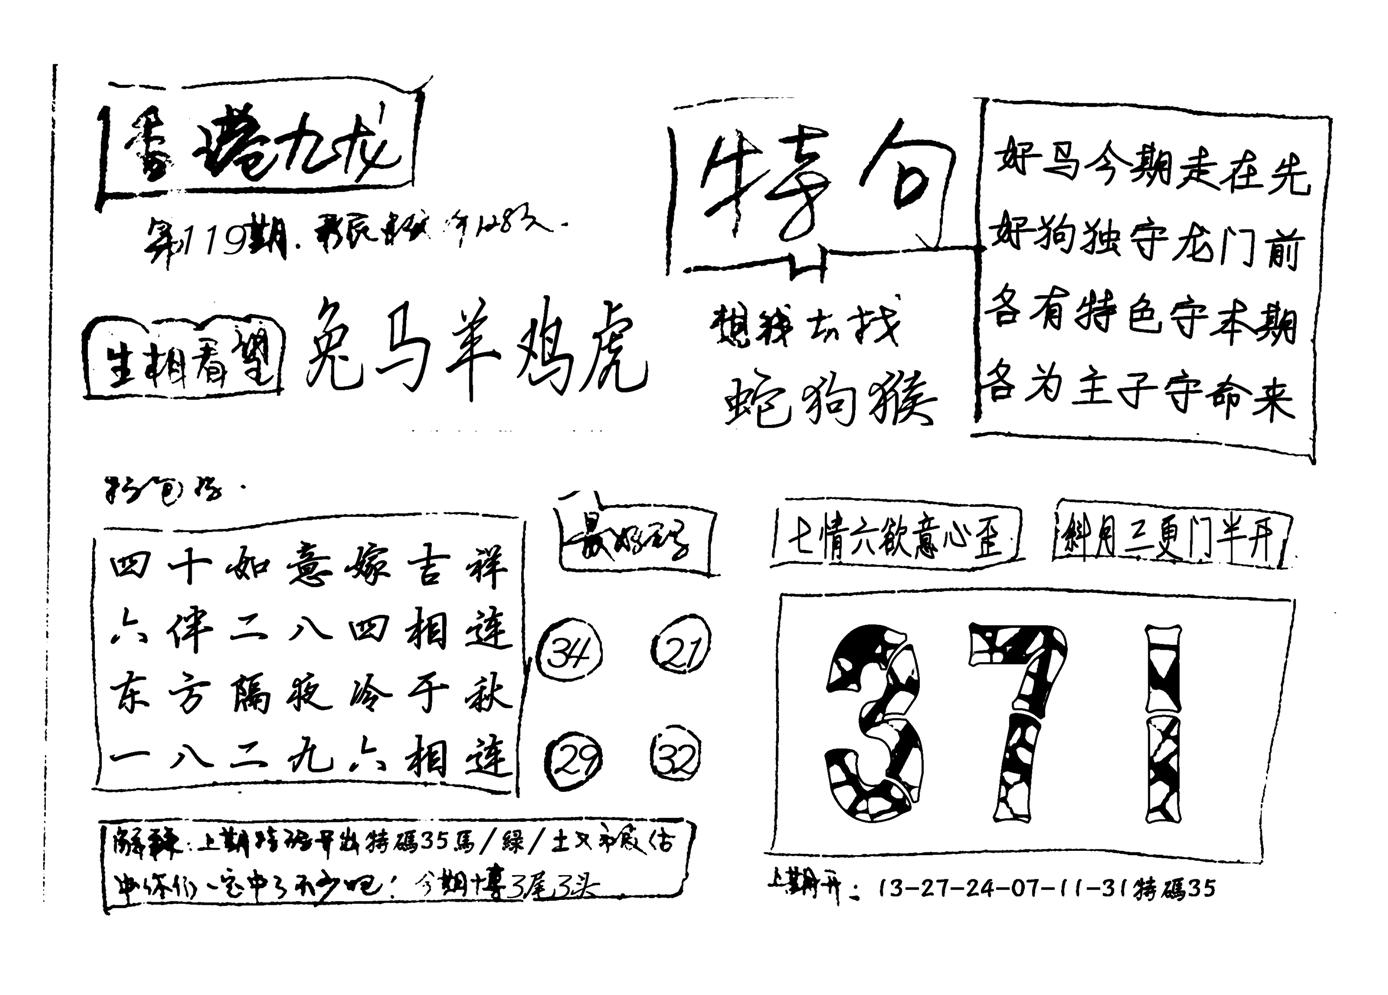 香港九龙
第119期.
生相看望
兔马羊鸡虎
特句
想钱去找
蛇狗猴
好马今期走在先
好狗独守龙门前
各有特色守本期
各为主子守命来
四十如意嫁吉祥
六伴二八四相连
东方隔夜冷于秋
一八二九六相连
最好
34 21
29 32
七情六欲意心歪
斜月三更门半开
371
解:上期特码开出特碼35馬/綠/土又估
中你们一定中了不少吧!今期博3尾3头
上期开:13-27-24-07-11-31特碼35